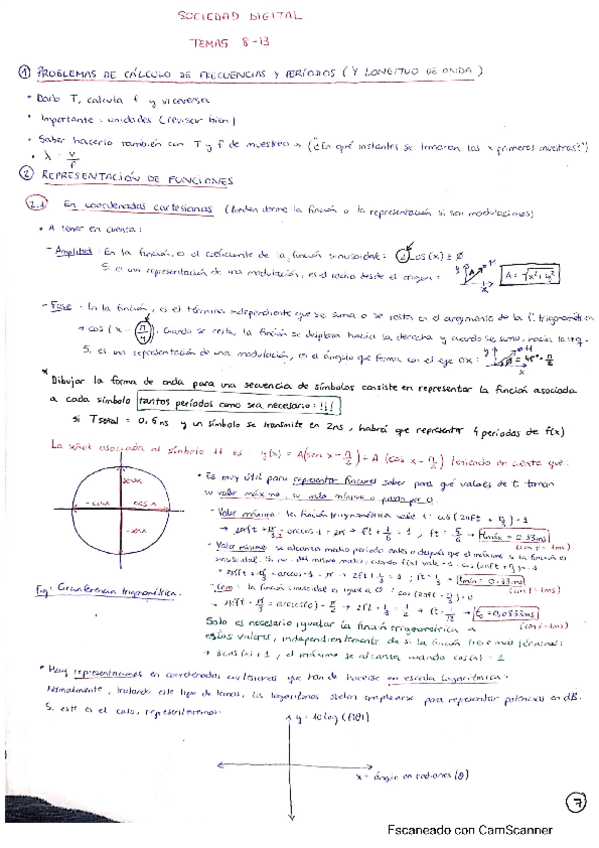 SOCIEDAD DIGITAL
TEMAS 8-13
① PROBLEMAS DE CÁLCULO DE FRECUENCIAS Y PERÍODOS (Y LONGITUD DE ONDA)
• Dado T, calcula f y viceversa
• Importante: unidades (revisar bien)
• Saber hacerlo también con T y f de muestreo → ("¿En qué instantes se tomaron las x primeras muestras?")
• λ = v/f
② REPRESENTACIÓN DE FUNCIONES
2.1 En coordenadas cartesianas (pueden darme la función o la representación si son modulaciones)
• A tener en cuenta:
- Amplitud: En la función, es el coeficiente de la función sinusoidal: 2 cos(x) ± Ø
Si es una representación de una modulación, es el radio desde el origen: A = √x²+y²
- Fase: En la función, es el término independiente que se suma o se resta en el argumento de la f. trigonométrica
→ cos(x - π/4). Cuando se resta, la función se desplaza hacia la derecha y cuando se suma, hacia la izq.
Si es una representación de una modulación, es el ángulo que forma con el eje OX:
* Dibujar la forma de onda para una secuencia de símbolos consiste en representar la función asociada
a cada símbolo tantos períodos como sea necesario: !!!
si Tseñal = 0,5ns y un símbolo se transmite en 2ns, habrá que representar 4 períodos de f(x)
La señal asociada al símbolo 11 es y(x) = A(sen x - π/2) + A (cos x - π/2) teniendo en cuenta que:
• Es muy útil para representar funciones saber para qué valores de t toman
su valor máximo, su valor mínimo o pasan por 0.
- Valor máximo: la función trigonométrica vale 1:
- Valor mínimo: se alcanza medio período antes o después que el máximo si la función es
sinusoidal.
- Cero: la función sinusoidal es igual a 0:
Solo es necesario igualar la función trigonométrica a
estos valores, independientemente de si la función tiene más términos:
→ 3cos(x)+1, el máximo se alcanza cuando cos(x) = 1
Fig: Circunferencia trigonométrica.
• Hay representaciones en coordenadas cartesianas que han de hacerse en escala logarítmica:
Normalmente, tratando este tipo de temas, los logaritmos suelen emplearse para representar potencias en dB.
Si este es el caso, representaremos:
y = 10 log (f(θ))
x = ángulo en radianes (θ)
7
Escaneado con CamScanner